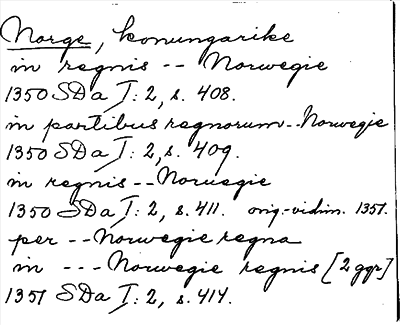 Norge, konungarike
in regnis -- Norwegie
1350 SDa I: 2, s. 408.
in partibus regnorum -- Norwegie
1350 SDa I: 2, s. 409.
in regnis -- Noruegie
1350 SDa I: 2, s. 411. orig.-vidim. 1351.
per -- Norwegie regna
in --- Norwegie regnis [2 ggr]
1351 SDa I: 2, s. 414.